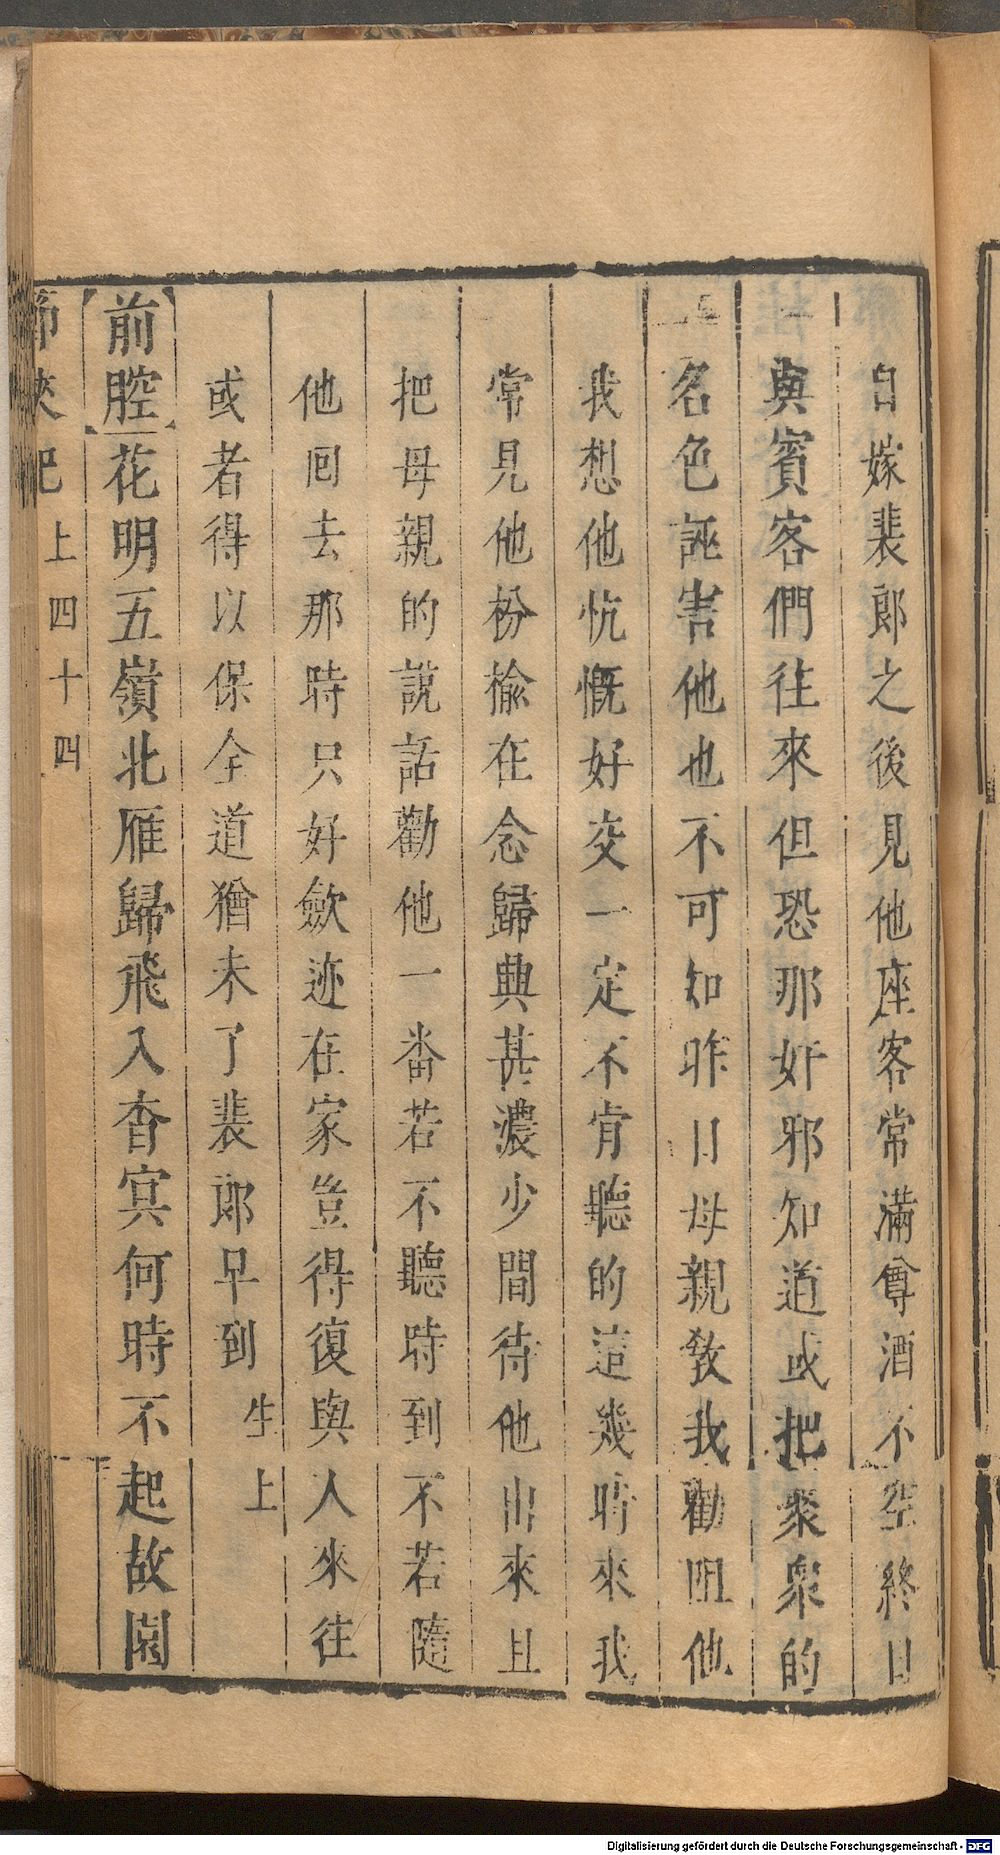 自嫁裴郎之後見他座客常滿尊酒不空終日
與賓客們往來但恐那奸邪知道或把衆衆的
名色誣害他也不可知昨日母親教我勸阻他
我想他忼慨好交一定不肯聽的這幾時來我
常見他枌榆在念歸興甚濃少間待他出來且
把母親的說話勸他一番若不聽時到不若隨
他回去那時只好歛迹在家豈得復與人來往
或者得以保全道猶未了裴郎早到 生上
【前腔】花明五嶺北雁歸飛入杳㝠何時不起故園
節俠記 上 四十四
Digitalisierung gefördert durch die Deutsche Forschungsgemeinschaft - DFG